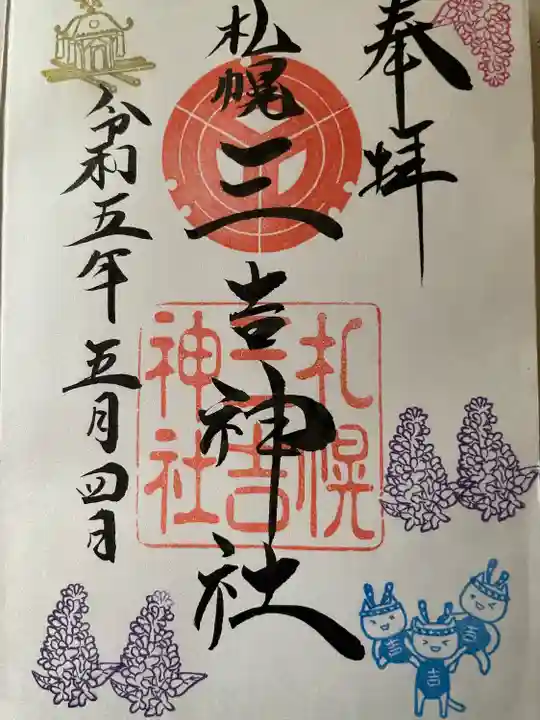 奉拝
札幌三吉神社
札幌
三吉
神社
令和五年五月四日
吉
吉
吉